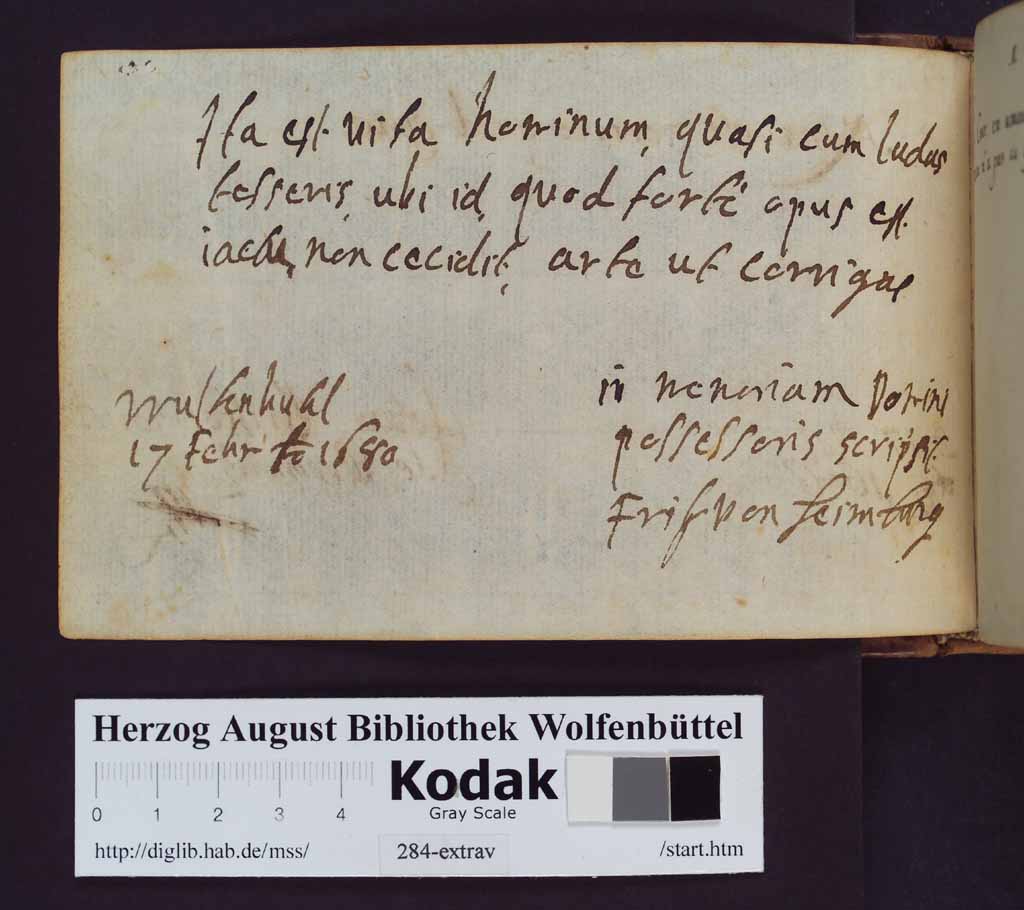 Ita est vita hominum, quasi cum ludas
tesseris, ubi id, quod forte opus est
iactu, non cecidit, arte ut corrigas
17 Febr 1680
in memoriam Domini
possessoris scripsit
von Heimburg
Herzog August Bibliothek Wolfenbüttel
Kodak
Gray Scale
0 1 2 3 4
http://diglib.hab.de/mss/ 284-extrav /start.htm